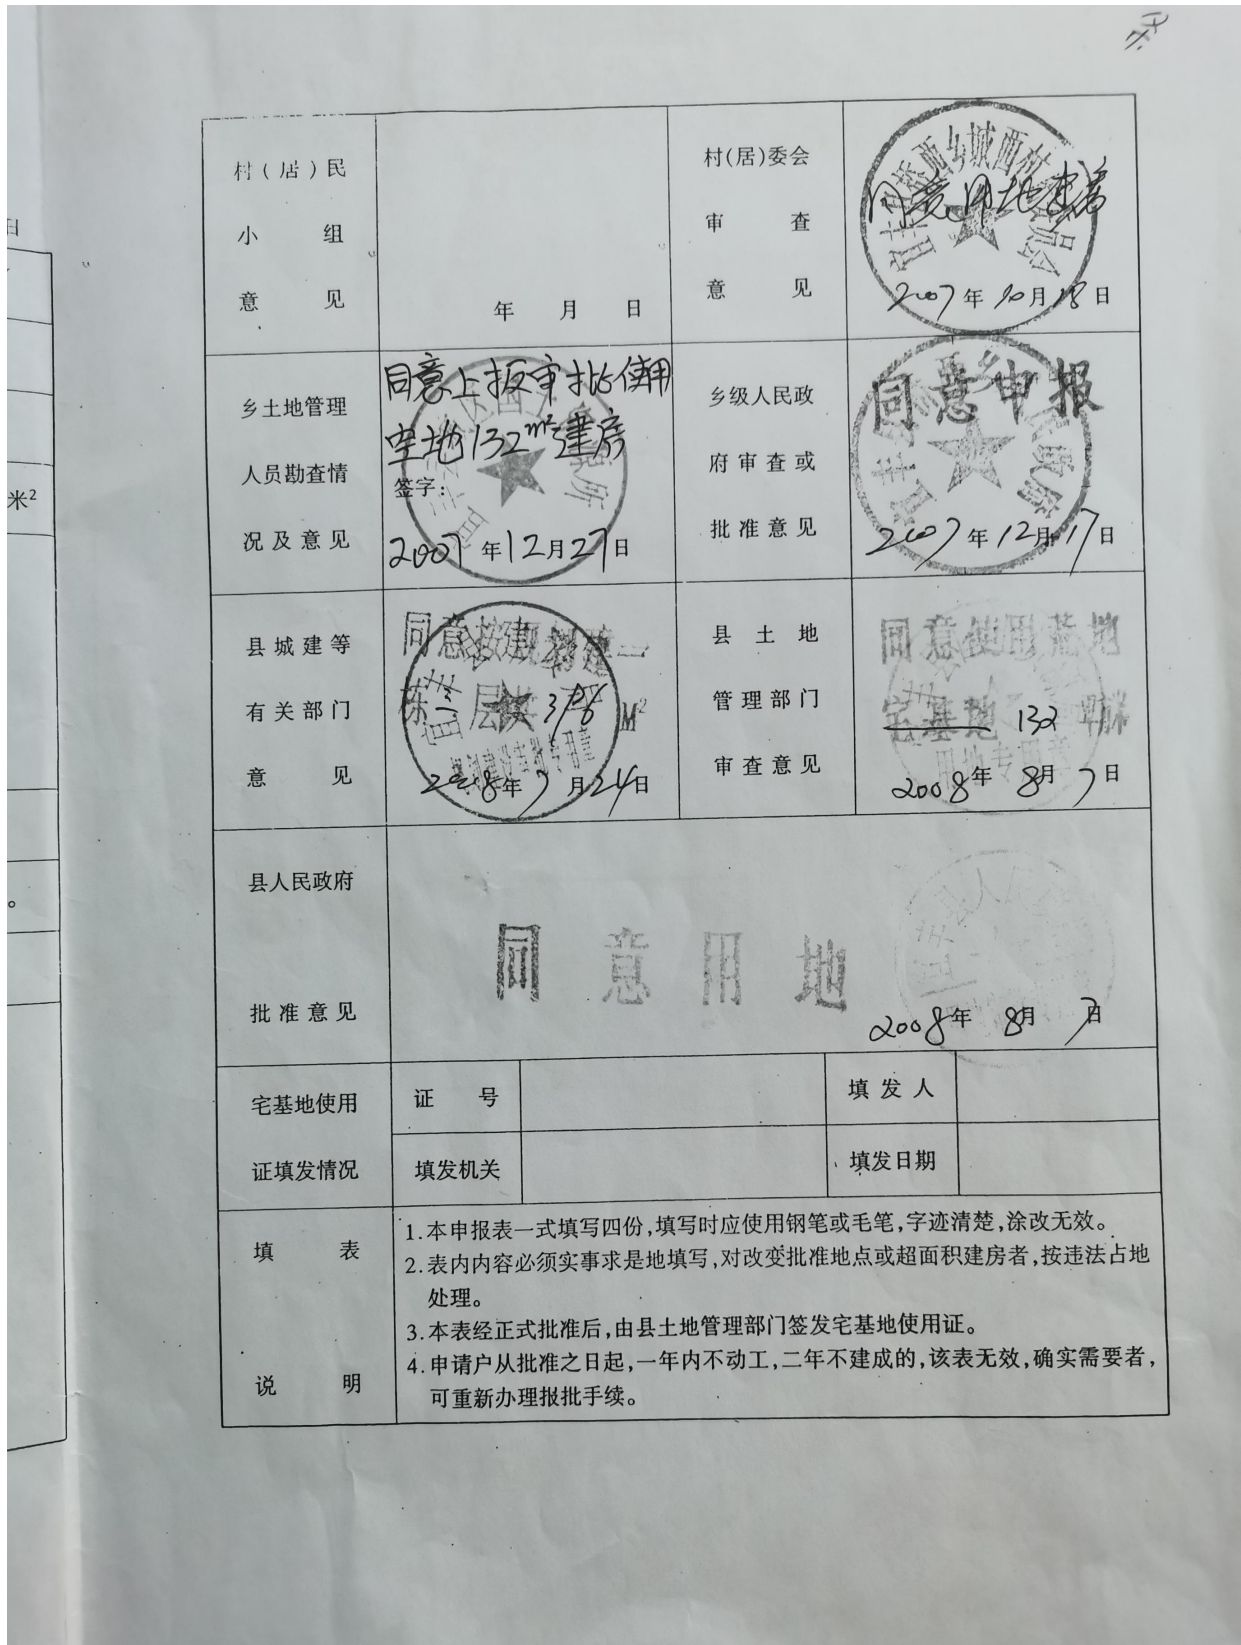 日
米2
。
村(居)民
小 组
意 见
年 月 日
村(居)委会
审 查
意 见
宜丰县桥西乡城西村 委员会
同意用地
2007年10月18日
乡土地管理
人员勘查情
况及意见
同意上报审批使用
空地132m²建房
签字:
2007年12月27日
乡级人民政
府审查或
批准意见
同意申报
宜丰县 乡人民政府
2007年12月17日
县城建等
有关部门
意 见
同意按规划建一
栋三层共 平 M²
2008年7月24日
县土地
管理部门
审查意见
同意使用荒地
宅基地 132 平方米
2008年8月7日
县人民政府
批准意见
同意用地
2008年8月7日
宅基地使用
证填发情况
证 号
填发人
填发机关
填发日期
填 表
说 明
1.本申报表一式填写四份,填写时应使用钢笔或毛笔,字迹清楚,涂改无效。
2.表内内容必须实事求是地填写,对改变批准地点或超面积建房者,按违法占地
处理。
3.本表经正式批准后,由县土地管理部门签发宅基地使用证。
4.申请户从批准之日起,一年内不动工,二年不建成的,该表无效,确实需要者,
可重新办理报批手续。